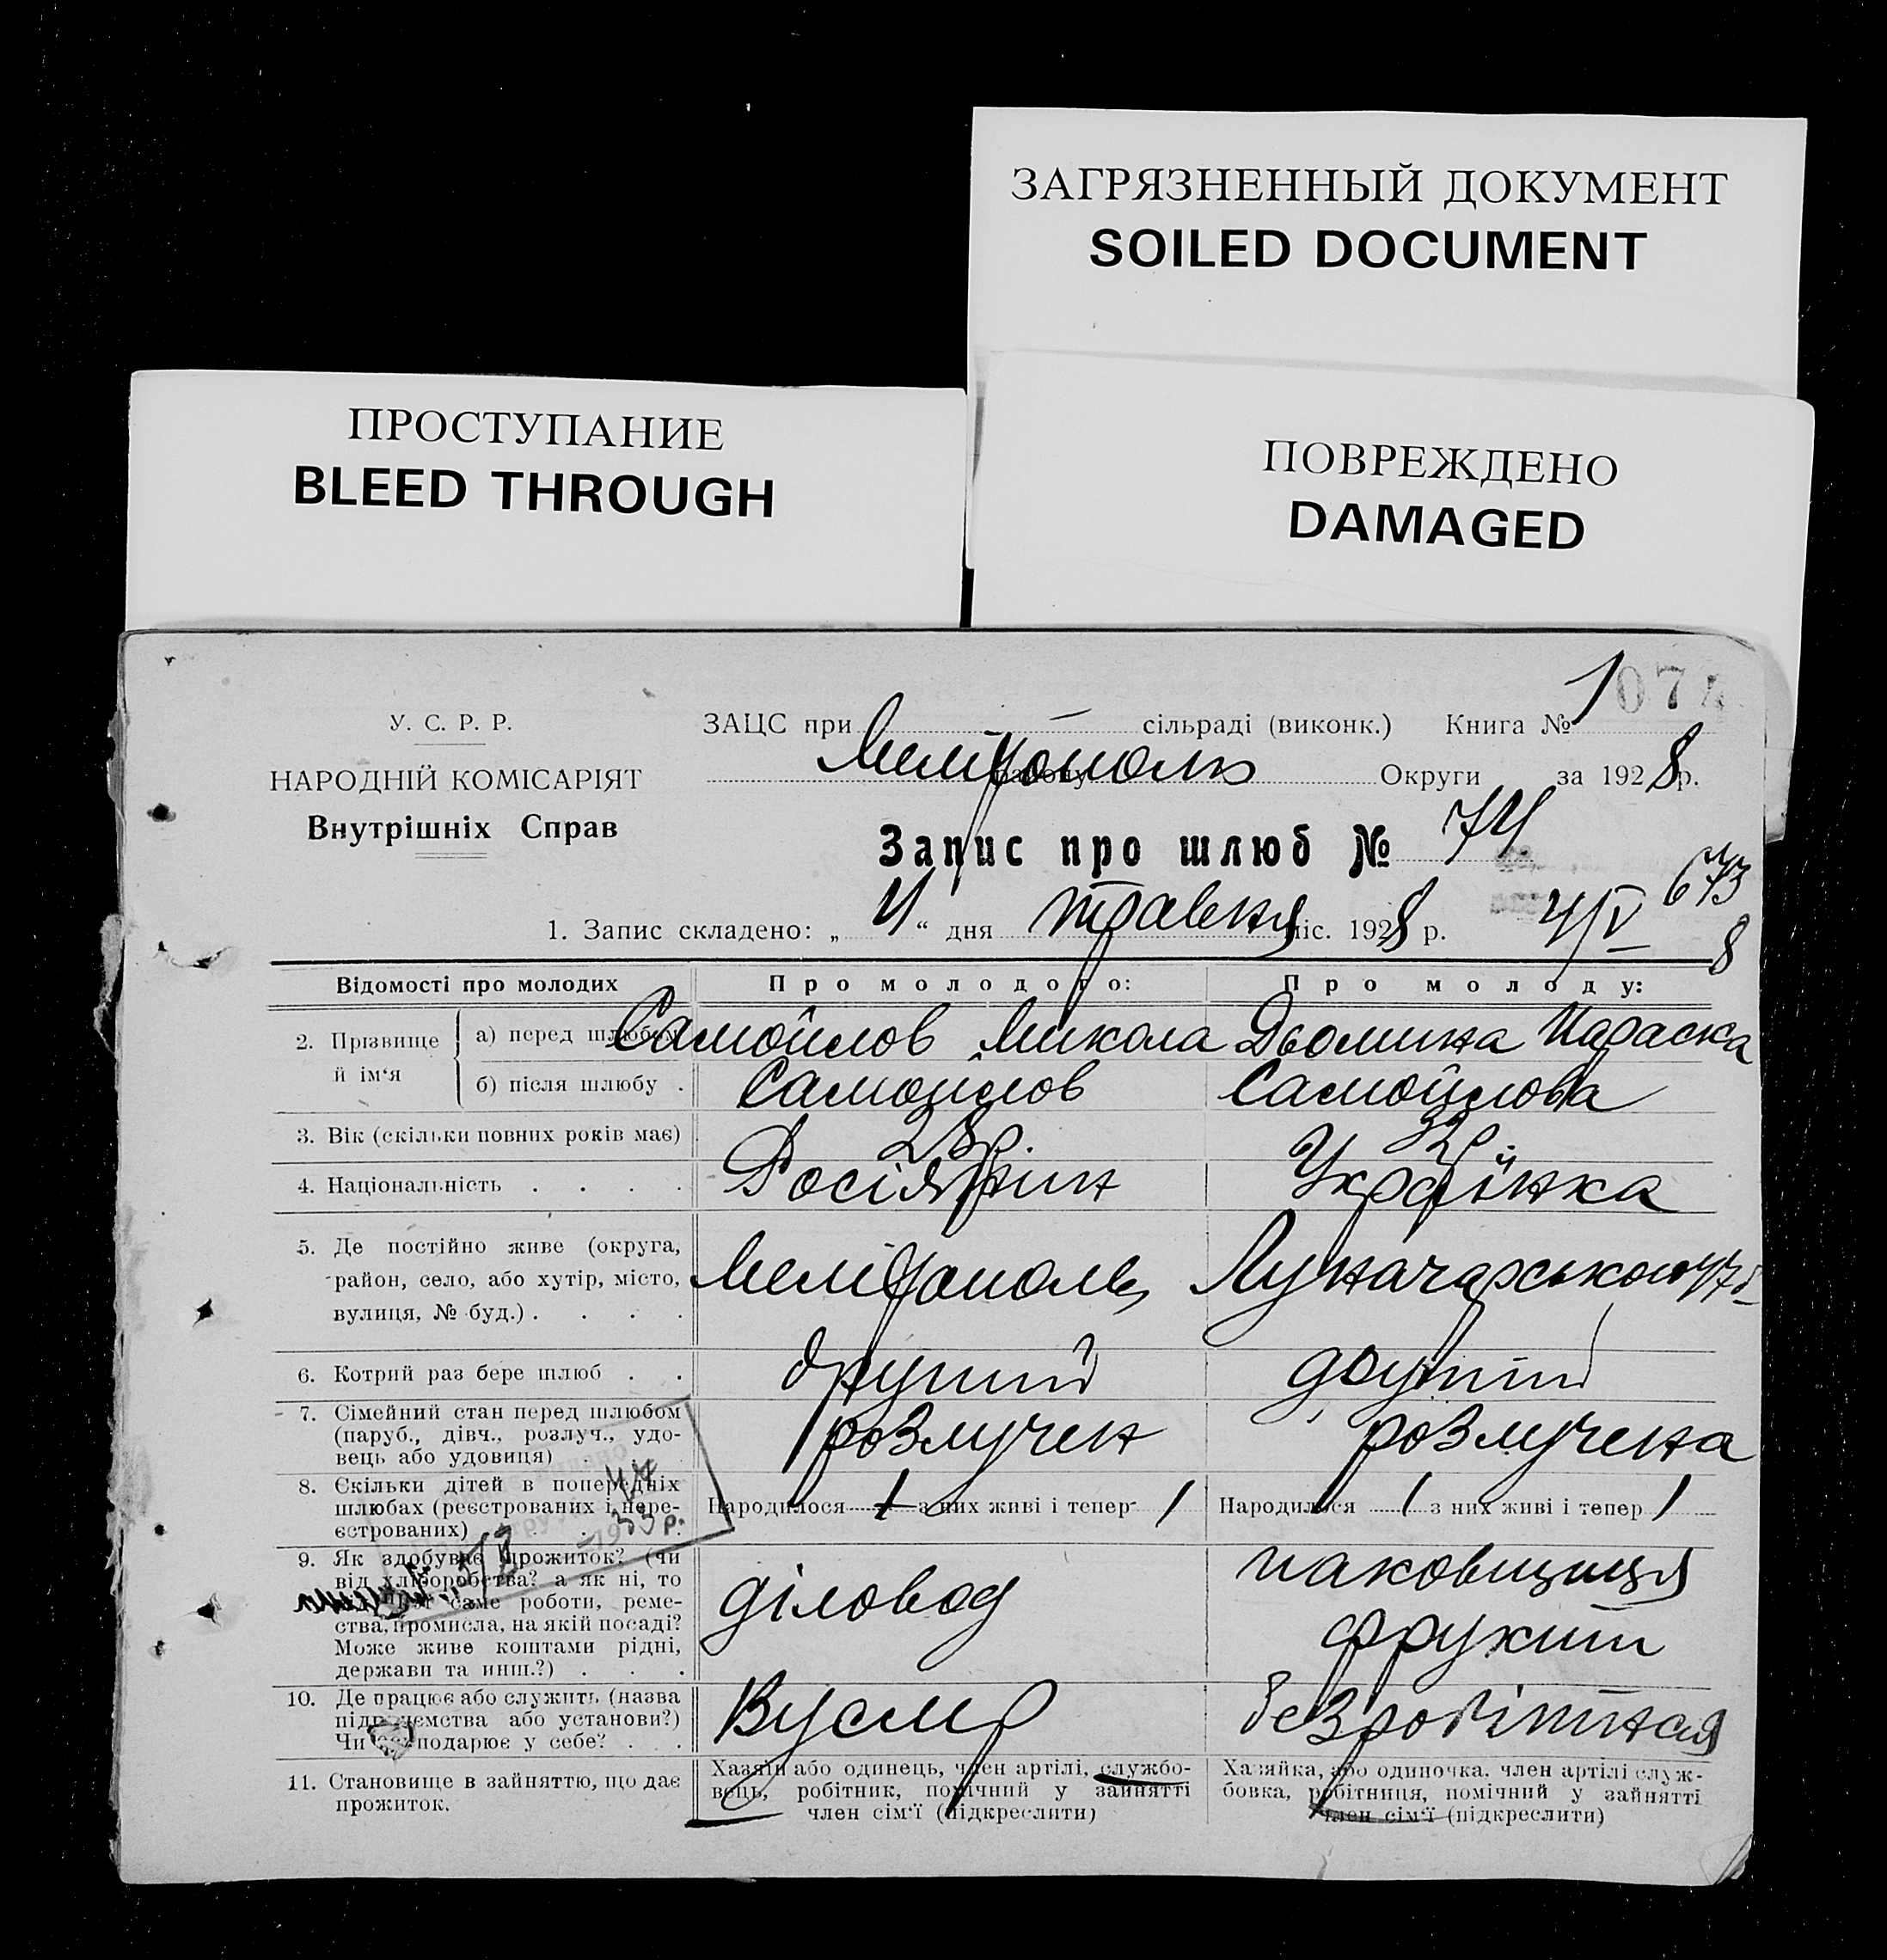 ЗАГРЯЗНЕННЫЙ ДОКУМЕНТ
SOILED DOCUMENT
ПРОСТУПАНИЕ
BLEED THROUGH
ПОВРЕЖДЕНО
DAMAGED
У. С. Р. Р.
НАРОДНІЙ КОМІСАРІЯТ
Внутрішніх Справ
ЗАЦС при — сільраді (виконк.) Книга № 1
Мелітополь району Округи за 1928 р.
Запис про шлюб № 74
673
1. Запис складено: „ 4 “ дня травня міс. 1928 р. 4/V 8
Відомості про молодих Про молодого: Про молоду:
2. Прізвище й ім‘я
а) перед шлюбом Самойлов Микола Дьомина Параска
б) після шлюбу . Самойлов Самойлова
3. Вік (скільки повних років має) 28 р. 32 р.
4. Національність . . . . Росіянин Українка
5. Де постійно живе (округа,
район, село, або хутір, місто,
вулиця, № буд.) . . . .
Мелітополь, Луначарського 47
6. Котрий раз бере шлюб . . другий другий
7. Сімейний стан перед шлюбом
(паруб., дівч., розлуч., удо-
вець або удовиця) . . .
розлучен розлучена
8. Скільки дітей в попередніх
шлюбах (реєстрованих і нере-
єстрованих)
Народилося 1 з них живі і тепер 1
Народилося 1 з них живі і тепер 1
1933 р.
9. Як здобуває прожиток? (чи
від хліборобства? а як ні, то
від якої саме роботи, реме-
ства, промисла, на якій посаді?
Може живе коштами рідні,
держави та инш.?) . . .
діловод
паковщиця
фрукти
10. Де працює або служить (назва
підприємства або установи?)
Чи господарює у себе? . . .
безробітная
11. Становище в зайняттю, що дає
прожиток.
Хазяїн або одинець, член артілі, службо-
вець, робітник, помічний у зайнятті
член сім‘ї (підкреслити)
Хазяйка, або одиночка, член артілі служ-
бовка, робітниця, помічний у зайнятті
член сім‘ї (підкреслити)